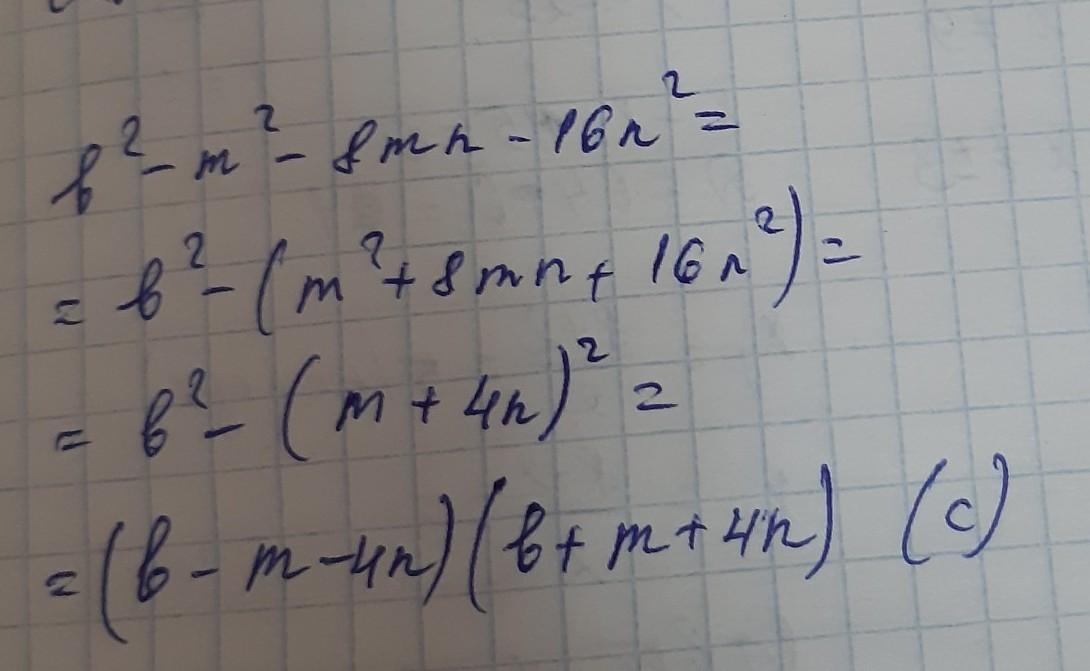 b² - m² - 8mn - 16n² =
= b² - (m² + 8mn + 16n²) =
= b² - (m + 4n)² =
= (b - m - 4n)(b + m + 4n) (c)